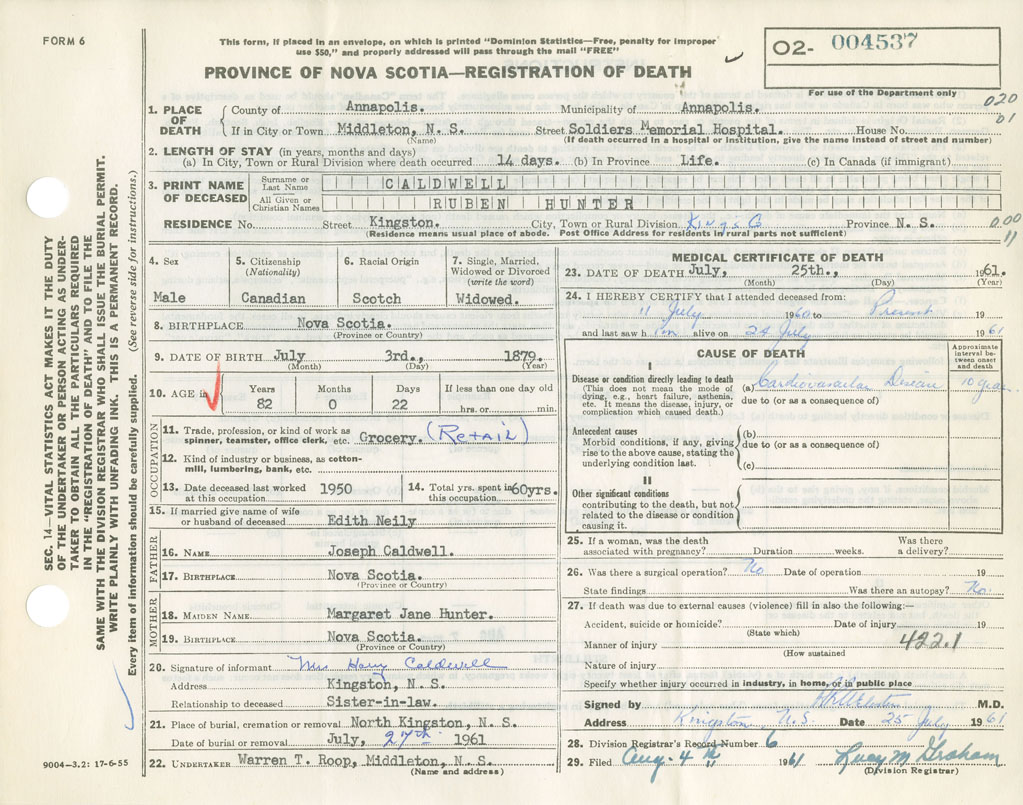 FORM 6
This form, if placed in an envelope, on which is printed "Dominion Statistics—Free, penalty for improper
use $50," and properly addressed will pass through the mail "FREE"
PROVINCE OF NOVA SCOTIA—REGISTRATION OF DEATH
O2- 004537
For use of the Department only
020
01
1. PLACE OF DEATH
County of Annapolis. Municipality of Annapolis.
If in City or Town Middleton, N. S. Street Soldiers Memorial Hospital. House No.
(Name) (If death occurred in a hospital or institution, give the name instead of street and number)
2. LENGTH OF STAY (in years, months and days)
(a) In City, Town or Rural Division where death occurred 14 days. (b) In Province Life. (c) In Canada (if immigrant)
3. PRINT NAME OF DECEASED
Surname or Last Name CALDWELL
All Given or Christian Names RUBEN HUNTER
RESIDENCE No. Street Kingston. City, Town or Rural Division Kings Co Province N. S.
(Residence means usual place of abode. Post Office Address for residents in rural parts not sufficient)
000
11
4. Sex
Male
5. Citizenship
(Nationality)
Canadian
6. Racial Origin
Scotch
7. Single, Married,
Widowed or Divorced
(write the word)
Widowed.
8. BIRTHPLACE Nova Scotia.
(Province or Country)
9. DATE OF BIRTH July 3rd., 1879.
(Month) (Day) (Year)
10. AGE in
Years Months Days If less than one day old
82 0 22 hrs. or min.
OCCUPATION
11. Trade, profession, or kind of work as
spinner, teamster, office clerk, etc. Grocery. (Retail)
12. Kind of industry or business, as cotton-
mill, lumbering, bank, etc.
13. Date deceased last worked
at this occupation 1950
14. Total yrs. spent in
this occupation 60yrs.
15. If married give name of wife
or husband of deceased Edith Neily
FATHER
16. NAME Joseph Caldwell.
17. BIRTHPLACE Nova Scotia.
(Province or Country)
MOTHER
18. MAIDEN NAME Margaret Jane Hunter.
19. BIRTHPLACE Nova Scotia.
(Province or Country)
20. Signature of informant Mrs Harry Caldwell
Address Kingston, N. S.
Relationship to deceased Sister-in-law.
21. Place of burial, cremation or removal North Kingston, N. S.
Date of burial or removal July, 27th 1961
22. UNDERTAKER Warren T. Roop, Middleton, N. S.
(Name and address)
MEDICAL CERTIFICATE OF DEATH
23. DATE OF DEATH July, 25th., 1961.
(Month) (Day) (Year)
24. I HEREBY CERTIFY that I attended deceased from:
11 July 1960 to Present 19
and last saw him alive on 24 July 1961
CAUSE OF DEATH
Approximate
interval be-
tween onset
and death
I
Disease or condition directly leading to death
(This does not mean the mode of
dying, e.g., heart failure, asthenia,
etc. It means the disease, injury, or
complication which caused death.)
(a) Cardiovascular Disease 10 years
due to (or as a consequence of)
Antecedent causes
Morbid conditions, if any, giving
rise to the above cause, stating the
underlying condition last.
(b)
due to (or as a consequence of)
(c)
II
Other significant conditions
contributing to the death, but not
related to the disease or condition
causing it.
25. If a woman, was the death
associated with pregnancy? Duration weeks. Was there
a delivery?
26. Was there a surgical operation? No Date of operation 19
State findings Was there an autopsy? No.
27. If death was due to external causes (violence) fill in also the following:—
Accident, suicide or homicide? Date of injury 19
(State which)
Manner of injury 422.1
(How sustained
Nature of injury
Specify whether injury occurred in industry, in home, or in public place
Signed by M.D.
Address Kingston, N.S. Date 25 July 1961
28. Division Registrar's Record Number 6
29. Filed Aug. 4th 1961 Lucy M Graham
(Division Registrar)
SEC. 14—VITAL STATISTICS ACT MAKES IT THE DUTY
OF THE UNDERTAKER OR PERSON ACTING AS UNDER-
TAKER TO OBTAIN ALL THE PARTICULARS REQUIRED
IN THE "REGISTRATION OF DEATH" AND TO FILE THE
SAME WITH THE DIVISION REGISTRAR WHO SHALL ISSUE THE BURIAL PERMIT.
WRITE PLAINLY WITH UNFADING INK. THIS IS A PERMANENT RECORD.
Every item of information should be carefully supplied. (See reverse side for instructions.)
9004-3.2: 17-6-55